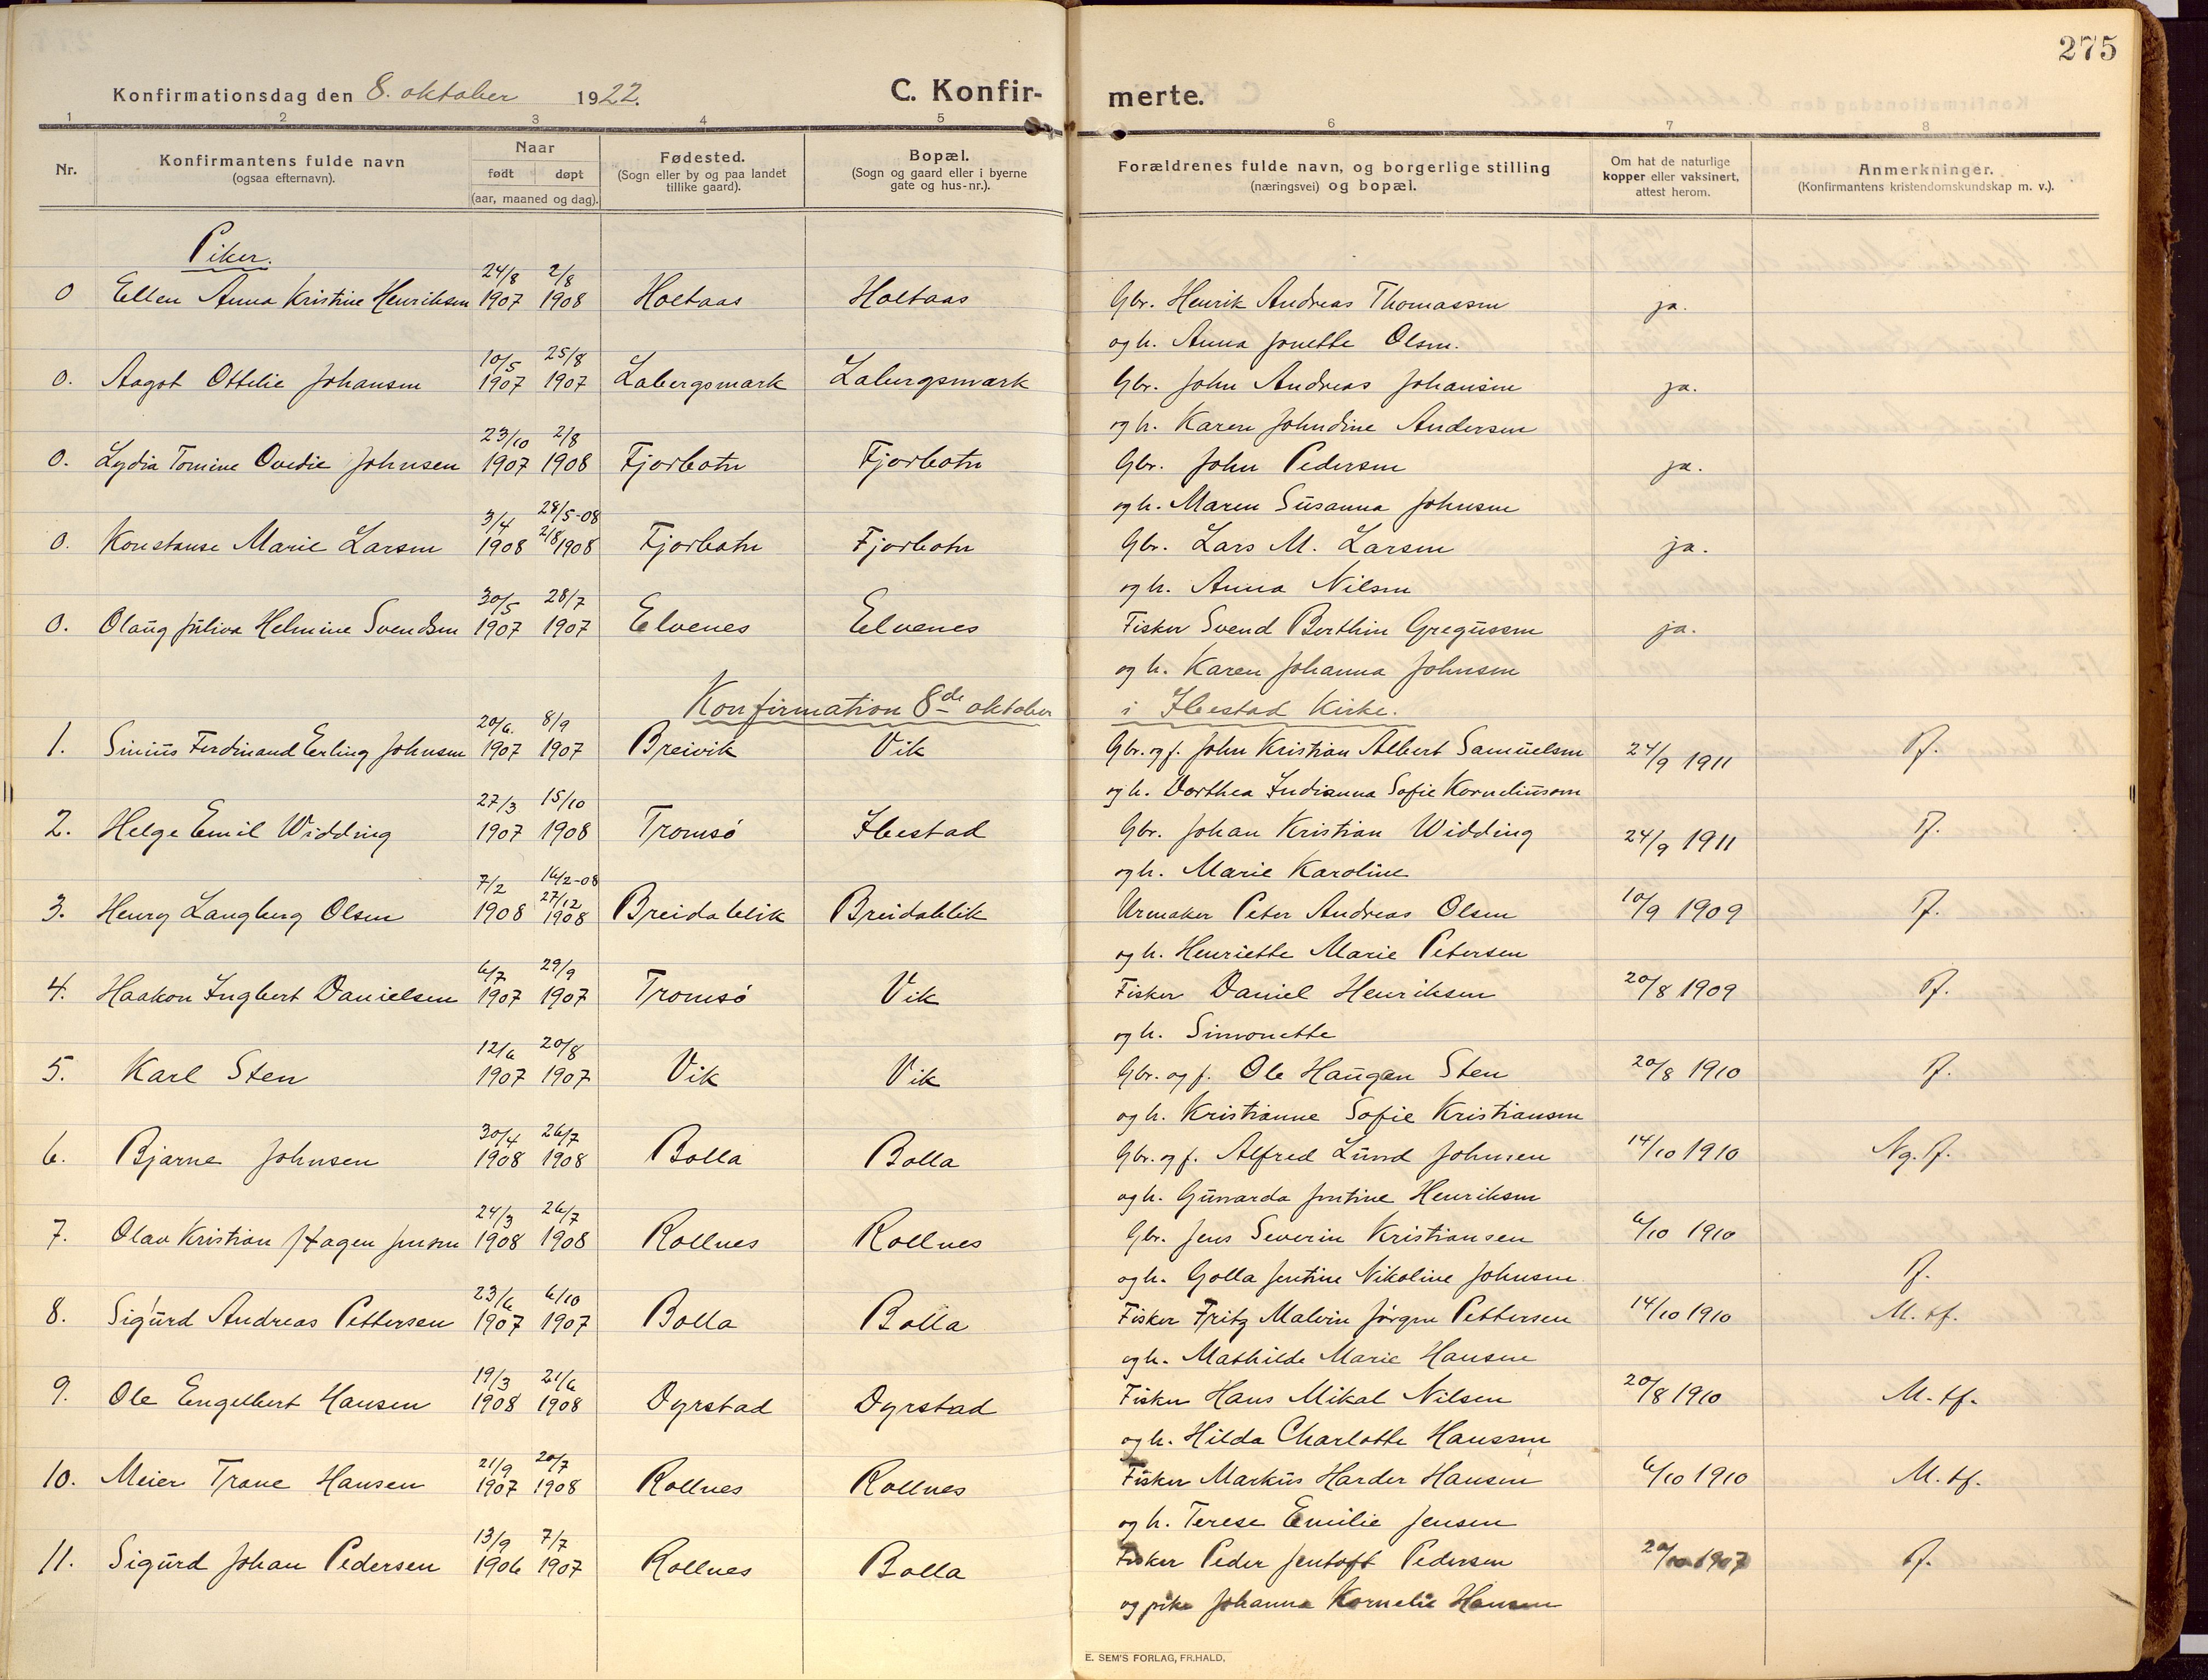 275
Konfirmationsdag den 8. oktober 1922. C. Konfirmerte.
1 2 3 4 5 6 7 8
Nr. Konfirmantens fulde navn (ogsaa efternavn). Naar født døpt (aar, maaned og dag). Fødested. (Sogn eller by og paa landet tillike gaard). Bopæl. (Sogn og gaard eller i byerne gate og hus-nr.). Forældrenes fulde navn, og borgerlige stilling (næringsvei) og bopæl. Om hat de naturlige kopper eller vaksinert, attest herom. Anmerkninger. (Konfirmantens kristendomskundskap m. v.).
Piker.
24/8 2/8
0 Ellen Anna Kristine Henriksen 1907 1908 Holtaas Holtaas Gbr. Henrik Andreas Thomassen ja.
og h. Anna Jonette Olsen.
10/5 25/8
0. Aagot Ottilie Johansen 1907 1907 Labergsmark Labergsmark Gbr. John Andreas Johansen ja.
og h. Karen Johndine Andersen
23/10 2/8
0. Lydia Tomine Ovedie Johnsen 1907 1908 Fjorbotn Fjorbotn Gbr. John Pedersen ja.
og h. Maren Susanna Johnsen
3/4 28/5-08
0. Konstanse Marie Larsen 1908 2/8 1908 Fjorbotn Fjorbotn Gbr. Lars M. Larsen ja.
og h. Anna Nilsen
30/5 28/7
0. Olaug Juliva Helmine Svendsen 1907 1907 Elvenes Elvenes Fisker Svend Berthin Gregussen ja.
og h. Karen Johanna Johnsen
Konfirmation 8de oktober i Ibestad Kirke.
20/6. 8/9
1. Sinius Ferdinand Erling Johnsen 1907 1907 Breivik Vik Gbr. og f. John Kristian Albert Samuelsen 24/9 1911
og h. Dorthea Indianna Sofie Korneliussen
27/3 15/10
2. Helge Emil Widding 1907 1908 Tromsø Ibestad Gbr. Johan Kristian Widding 24/9 1911
og h. Marie Karoline
7/2 16/2-08
27/12
3. Henry Langberg Olsen 1908 1908 Breidablik Breidablik Urmaker Peter Andreas Olsen 10/9 1909
og h. Henriette Marie Petersen
6/7 29/9
4. Haakon Ingbert Danielsen 1907 1907 Tromsø Vik Fisker Daniel Henriksen 20/8 1909
og h. Simonette
12/6 20/8
5. Karl Sten 1907 1907 Vik Vik Gbr. og f. Ole Haugan Sten 20/8 1910
og h. Kristianne Sofie Kristiansen
30/4 26/7
6. Bjarne Johnsen 1908 1908 Bolla Bolla Gbr. og f. Alfred Lund Johnsen 14/10 1910
og h. Gunarda Jentine Henriksen
24/3 26/7
7. Olav Kristian Hagen Jensen 1908 1908 Rollnes Rollnes Gbr. Jens Severin Kristiansen 6/10 1910
og h. Golla Jentine Nikoline Johnsen
23/6 6/10
8. Sigurd Andreas Pettersen 1907 1907 Bolla Bolla Fisker Fritz Malvin Jørgen Pettersen 14/10 1910 M. tf.
og h. Mathilde Marie Hansen
19/3 21/6
9. Ole Engelbert Hansen 1908 1908 Dyrstad Dyrstad Fisker Hans Mikal Nilsen 20/8 1910 M. tf.
og h. Hilda Charlotte Hanssen
21/9 20/7
10. Meier Trane Hansen 1907 1908 Rollnes Rollnes Fisker Markus Harder Hansen 6/10 1910 M. tf.
og h. Terese Emilie Jensen
13/9 7/7
11. Sigurd Johan Pedersen 1906 1907 Rollnes Bolla Fisker Peder Jentoft Pedersen 20/10 1907
og pike Johanna Kornelie Hansen
E. SEM'S FORLAG, FR.HALD.